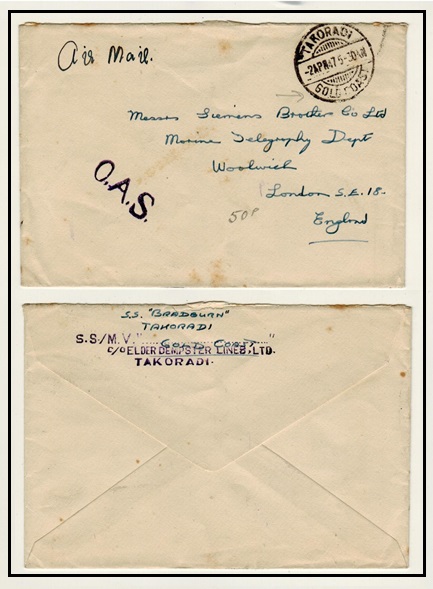 Air Mail.
TAKORADI
-2APR47 5-30AM
GOLD COAST
Messrs Siemens Brothers Co Ltd
Marine Telegraphy Dept
Woolwich
London S.E. 18.
England
O.A.S.
50P
S.S. "BRADBURN"
TAKORADI
GOLD COAST
S.S/M.V." "
C/O ELDER DEMPSTER LINES, LTD.
TAKORADI.